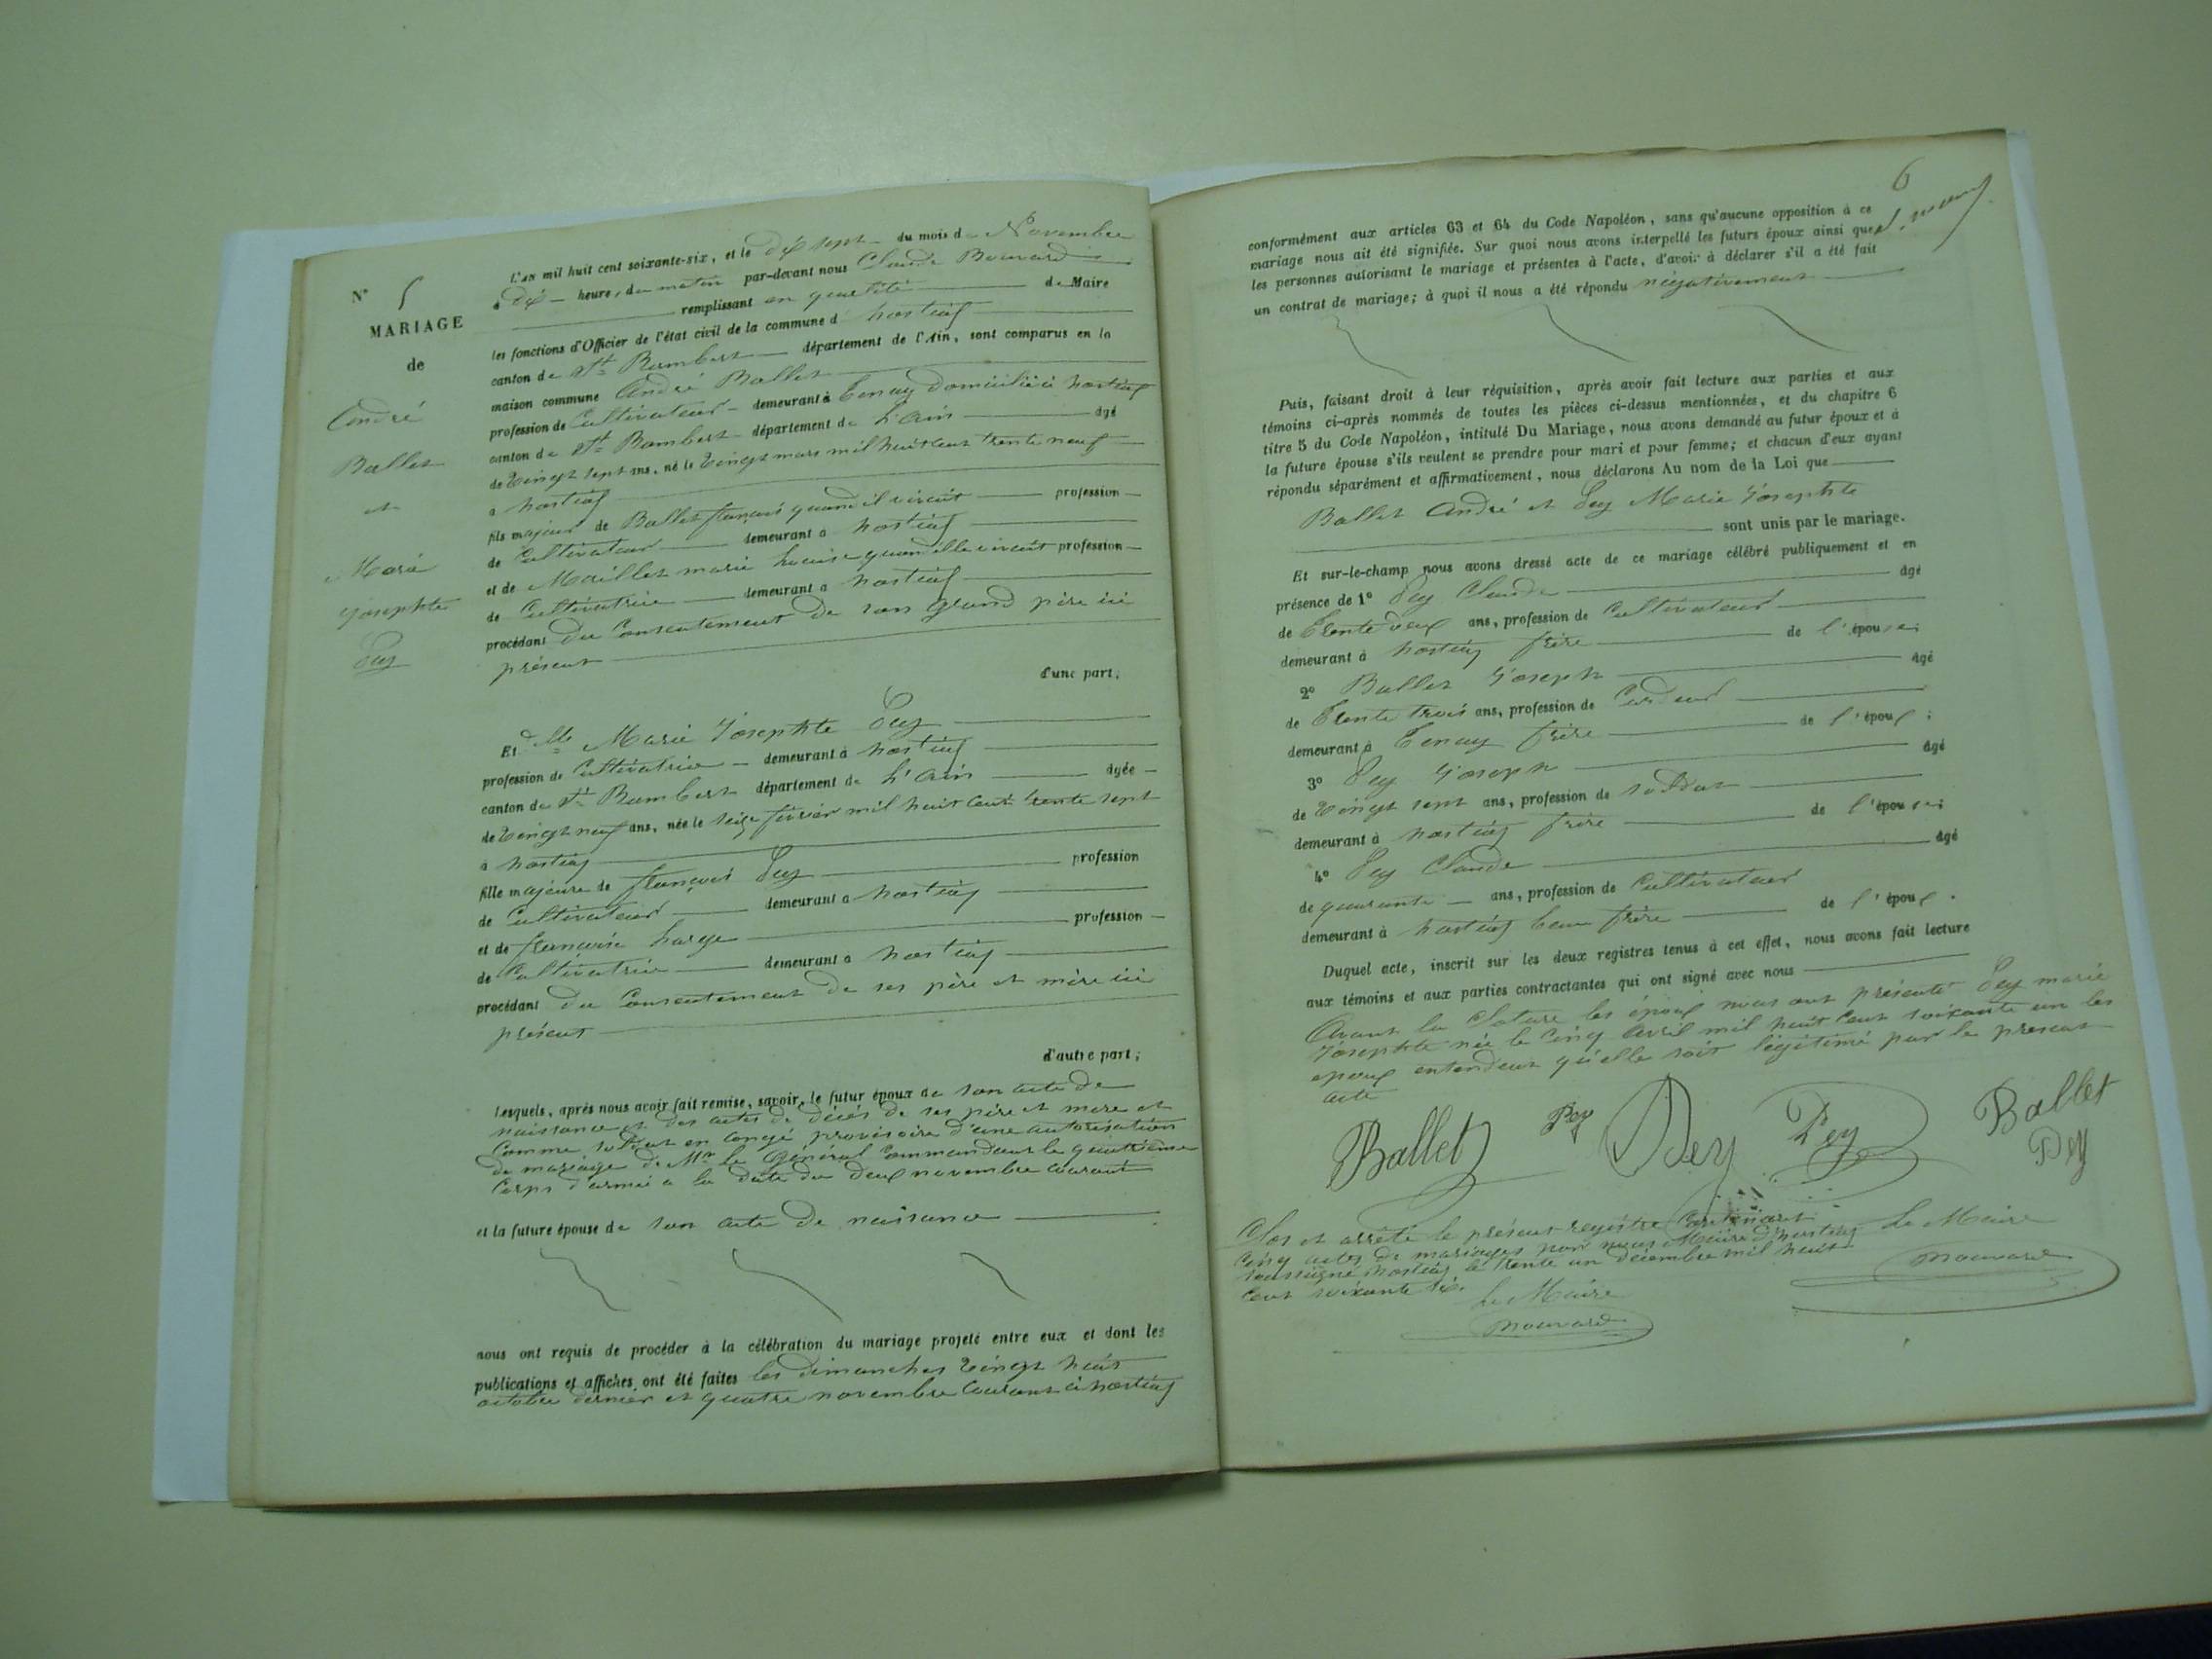 N° 5
MARIAGE
de
André
Ballet
et
Marie
Josephte
Pey
L'an mil huit cent soixante-six, et le dix sept du mois d Novembre
à dix heures du matin par-devant nous Claude Bouvard
remplissant en qualité de Maire
les fonctions d'Officier de l'état civil de la commune d hostiaz
canton de St Rambert département de l'Ain, sont comparus en la
maison commune André Ballet
profession de Cultivateur demeurant à Tenay domicilié à hostiaz
canton de St Rambert département de L'ain âgé
de Vingt sept ans, né le Vingt mars mil huit cent trente neuf
à hostiaz
fils majeur de Ballet françois quand il vivait profession
de Cultivateur demeurant à hostiaz
et de Maillet marie Louise quand elle vivait profession
de Cultivatrice demeurant à hostiaz
procédant du Consentement de son grand père ici
présent
d'une part;
Et dlle Marie Josephte Pey
profession de Cultivatrice demeurant à hostiaz
canton de St Rambert département de L'ain âgée
de Vingt neuf ans, née le seize février mil huit cent trente sept
à hostiaz
fille majeure de françois Pey profession
de Cultivateur demeurant à hostiaz
et de françoise Large profession
de Cultivatrice demeurant à hostiaz
procédant du Consentement de ses père et mère ici
présent
d'autre part;
Lesquels, après nous avoir fait remise, savoir, le futur époux de son acte de
naissance et des actes de décès de ses père et mere et
comme soldat en congé provisoire d'une autorisation
de mariage de Mr le Général Commandant le quatrième
Corps d'armée a la date du deux novembre courant
et la future épouse de son acte de naissance
nous ont requis de procéder à la célébration du mariage projeté entre eux et dont les
publications et affiches ont été faites les dimanches Vingt huit
octobre dernier et quatre novembre Courant à hostiaz
6
conformément aux articles 63 et 64 du Code Napoléon, sans qu'aucune opposition à ce
mariage nous ait été signifiée. Sur quoi nous avons interpellé les futurs époux ainsi que
les personnes autorisant le mariage et présentes à l'acte, d'avoir à déclarer s'il a été fait
un contrat de mariage; à quoi il nous a été répondu négativement
Puis, faisant droit à leur réquisition, après avoir fait lecture aux parties et aux
témoins ci-après nommés de toutes les pièces ci-dessus mentionnées, et du chapitre 6
titre 5 du Code Napoléon, intitulé Du Mariage, nous avons demandé au futur époux et à
la future épouse s'ils veulent se prendre pour mari et pour femme; et chacun d'eux ayant
répondu séparément et affirmativement, nous déclarons Au nom de la Loi que
Ballet André et Pey Marie Josephte
sont unis par le mariage.
Et sur-le-champ nous avons dressé acte de ce mariage célébré publiquement et en
présence de 1° Pey Claude âgé
de Trente deux ans, profession de Cultivateur
demeurant à hostiaz frère de l'épouse;
2° Ballet Joseph âgé
de Trente trois ans, profession de Cardeur
demeurant à Tenay frère de l'époux;
3° Pey Joseph âgé
de Vingt sept ans, profession de soldat
demeurant à hostiaz frère de l'épouse;
4° Pey Claude âgé
de quarante ans, profession de Cultivateur
demeurant à hostiaz beau frère de l'époux.
Duquel acte, inscrit sur les deux registres tenus à cet effet, nous avons fait lecture
aux témoins et aux parties contractantes qui ont signé avec nous
Avant la Cloture les époux nous ont présenté Pey marie
Josephte née le Cinq Avril mil huit Cent soixante un les
epoux entendent qu'elle soit légitimé par le present
acte
Ballet Pey Pey Pey Ballet
Pey
Clos et arrêté le présent registre Contenant
Cinq actes de mariages par nous Maire d'hostiaz
soussigné hostiaz le trente un décembre mil huit
Cent soixante six.
Le Maire
Bouvard
Le Maire
Bouvard